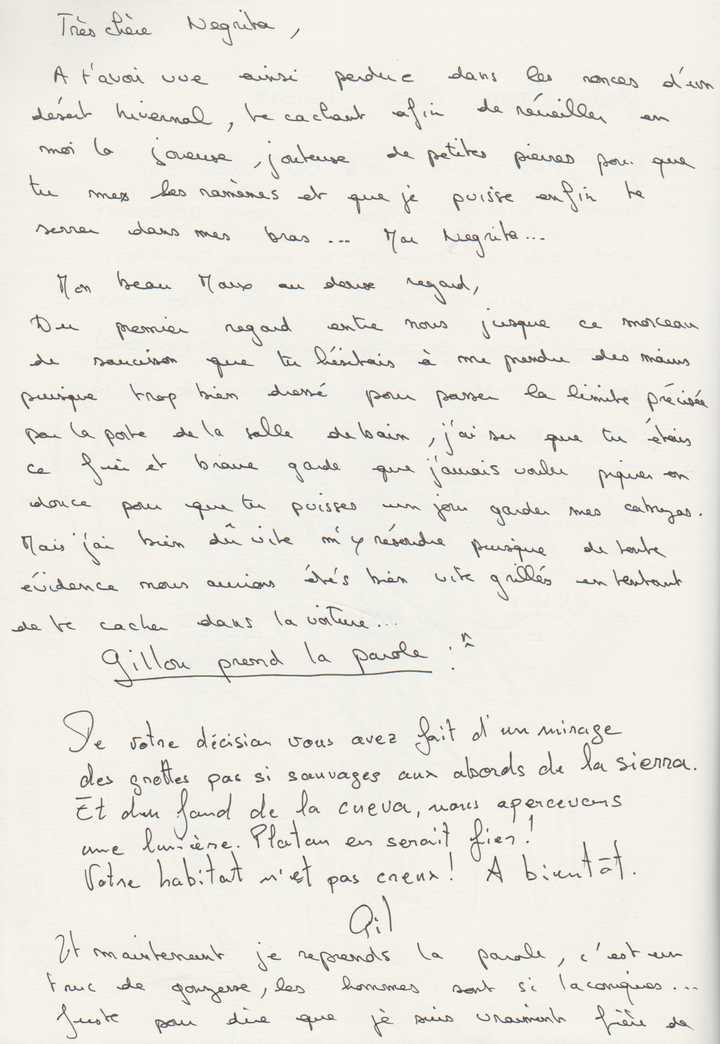 Très chère Negrita,
A t'avoir vue ainsi perdue dans les ronces d'un
désert hivernal, te cachant afin de réveiller en
moi la joueuse, jouteuse de petites pierres pour que
tu mes les ramènes et que je puisse enfin te
serrer dans mes bras... Ma Negrita...
Mon beau Maux au doux regard,
Du premier regard entre nous jusque ce morceau
de saucisson que tu hésitais à me prendre des mains
puisque trop bien dressé pour passer la limite précisée
par la porte de la salle de bain, j'ai su que tu étais
ce fier et brave garde que j'aurais voulu piquer en
douce pour que tu puisses un jour garder mes
Mais j'ai bien dû vite m'y résoudre puisque de toute
évidence nous aurions étés bien vite grillés en tentant
de te cacher dans la voiture...
Gillou prend la parole :
De votre décision vous avez fait d'un mirage
des grottes pas si sauvages aux abords de la sierra.
Et du fond de la cueva, nous apercevons
une lumière. Platon en serait fier!
Votre habitat n'est pas creux! A bientôt.
Gil
Et maintenant je reprends la parole, c'est un
truc de gonzesse, les hommes sont si laconiques...
Juste pour dire que je suis vraiment fière de